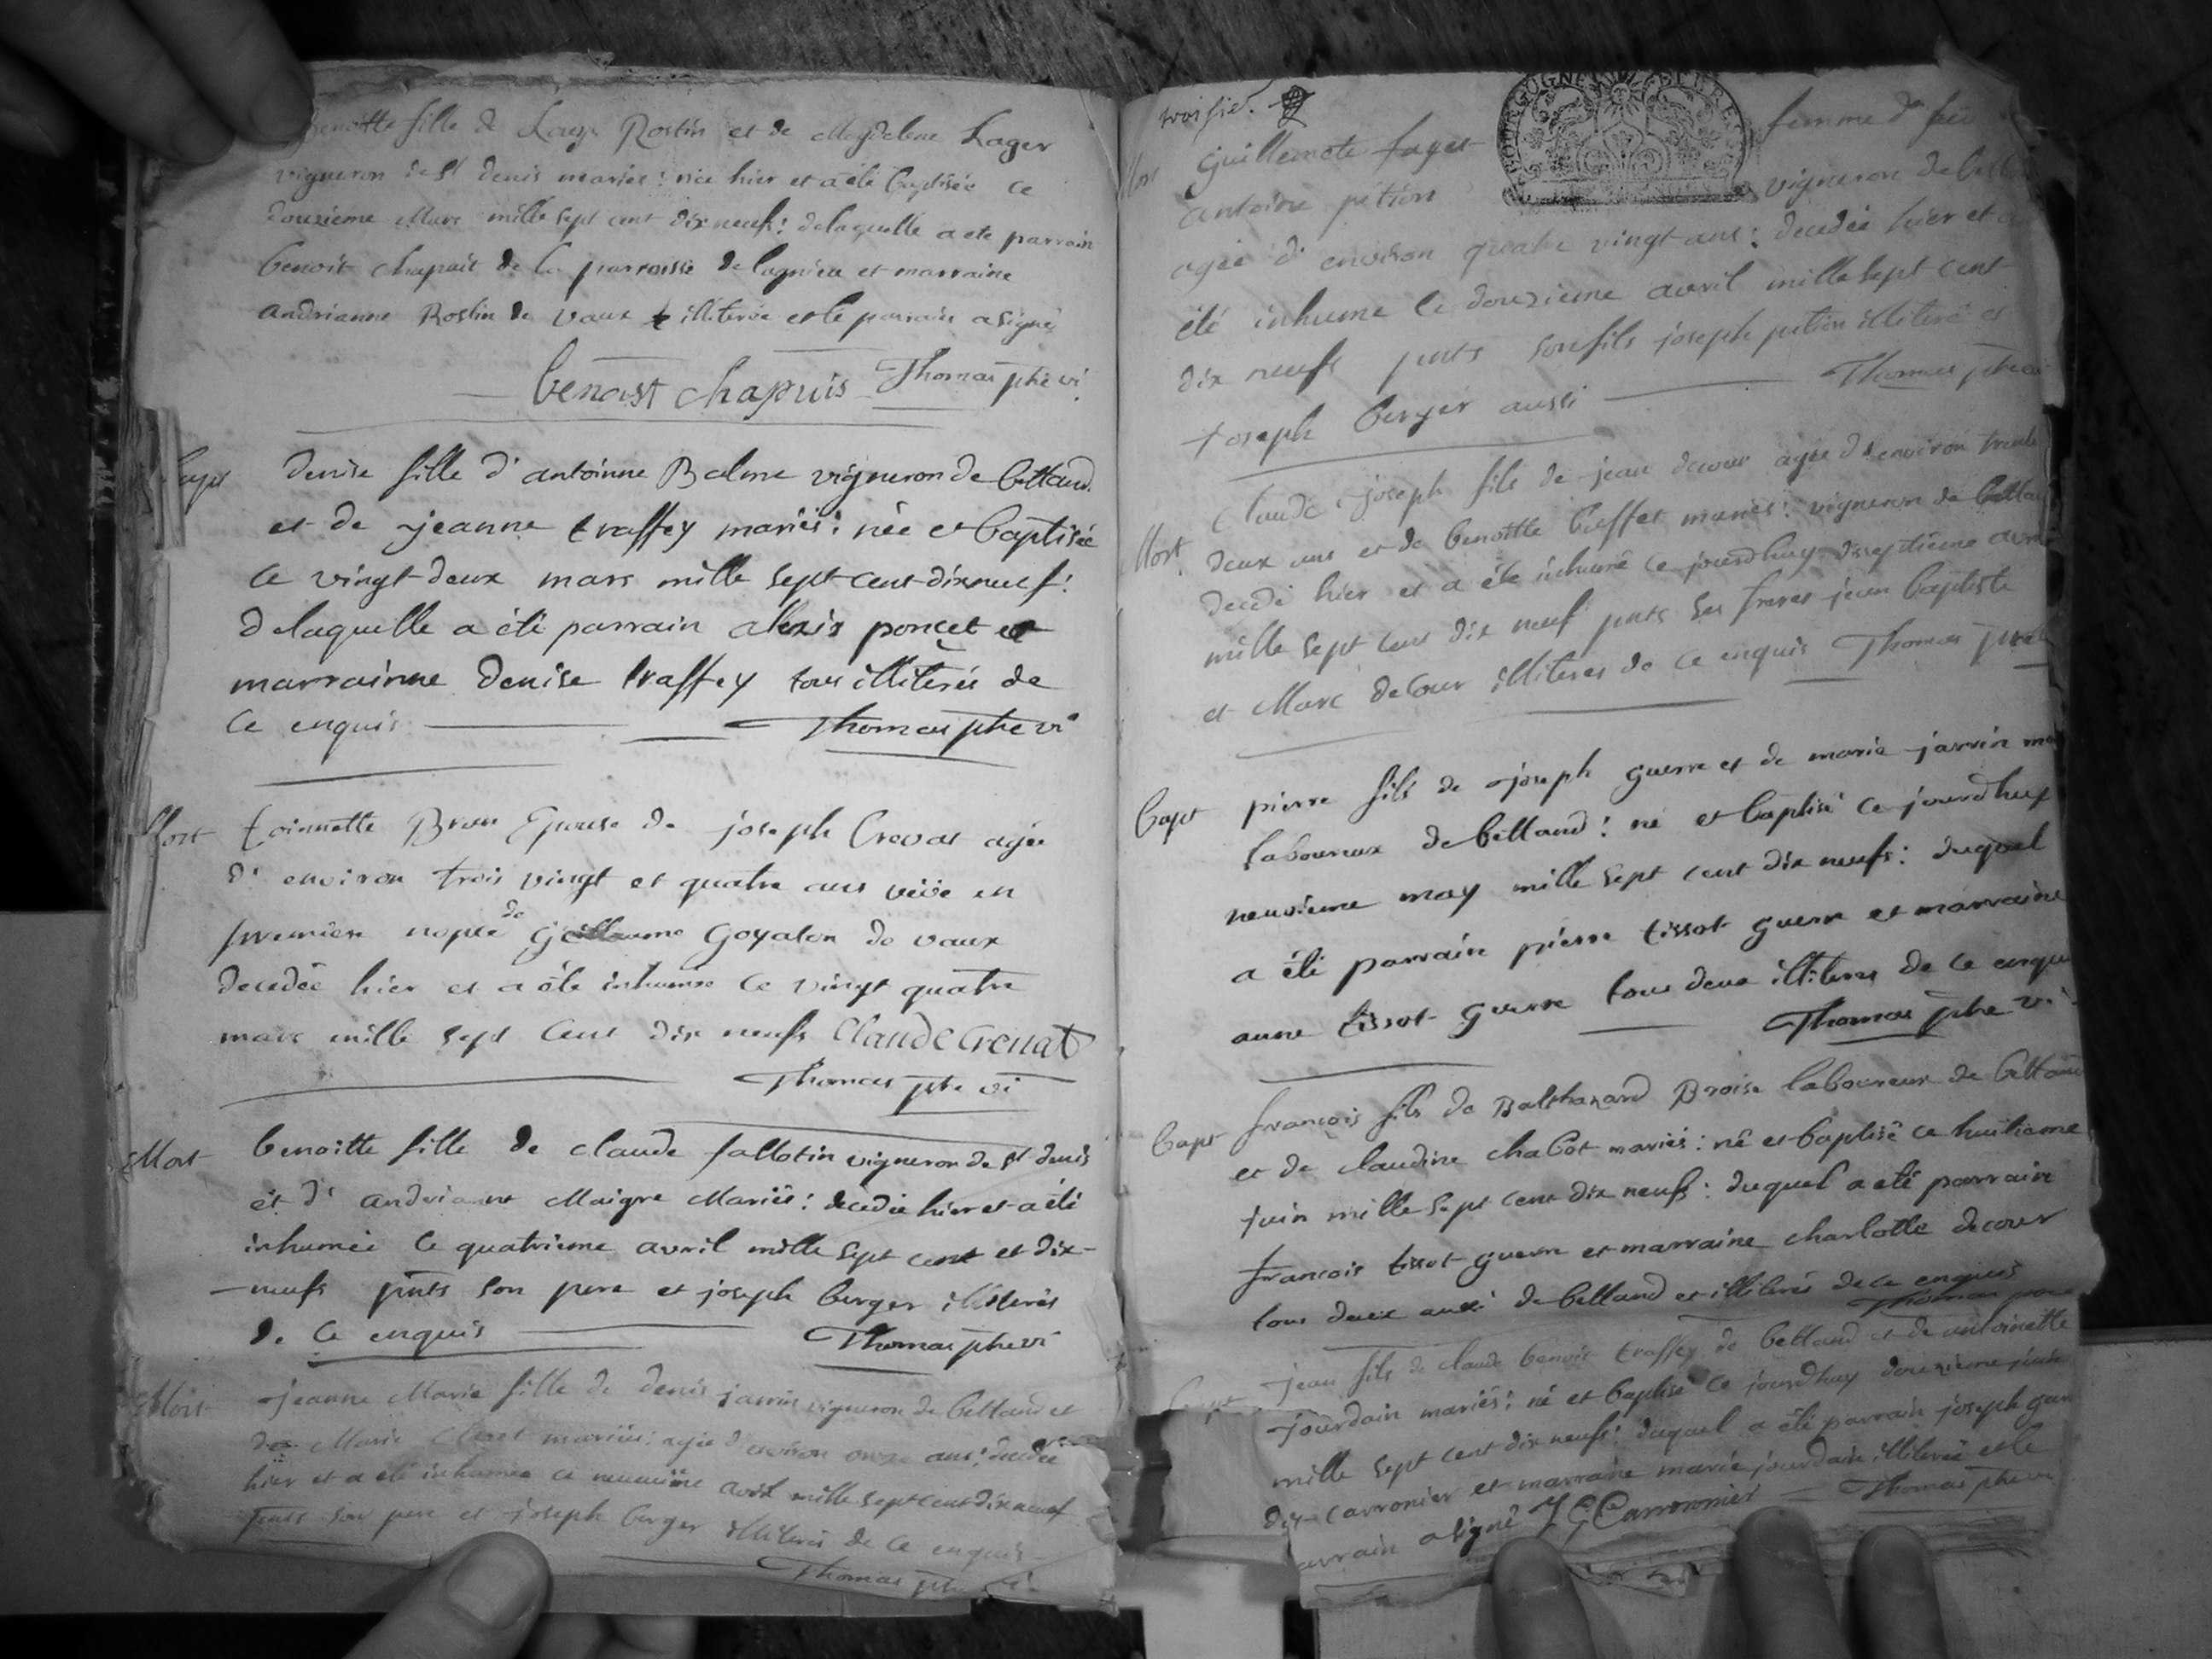 benoitte fille de Rostin et de Magdelene Lager
vigneron de St denis mariés : née hier et a été baptisée ce
douzieme Mars mille sept cent dix neufs : delaquelle a ete parrain
benoit chapuit de la parroisse de lagnieu et marraine
andrianne Rostin de vaux illiterée et le parrain a signé
benoist chapuis Thomas ptre vi
Bapt denise fille d'antoinne Balme vigneron de bettand
et de jeanne traffey mariés : née et baptisée
ce vingt-deux mars mille sept cent dix neuf :
delaquelle a été parrain alexis ponçet et
marrainne denise traffey tous illiterés de
ce enquis Thomas ptre vi
Mort toinnette Brun Epouse de joseph Crevat agée
d'environ trois vingt et quatre ans veüe en
premiere nopce de Guillaume Goyaton de vaux
decedée hier et a été inhumée ce vingt quatre
mars mille sept cent dix neufs Claude Crevat
Thomas ptre vi
Mort benoitte fille de claude fallotin vigneron de St denis
et d'andrianne Maigre Mariés : decedée hier et a été
inhumée ce quatrieme avril mille sept cent et dix-
-neufs pnts son pere et joseph berger illiterés
de ce enquis Thomas ptre vi
Mort jeanne Marie fille de denis jarrin vigneron de bettand et
de Marie mariés : agée d'environ onze ans : decedée
hier et a été inhumée ce neuvieme avril mille sept cent dix neuf
pnts son pere et joseph berger illiterés de ce enquis
Thomas ptre vi
troisie.
Mort Guillemete fayet femme de feü
antoine pition vigneron de
agée d'environ quatre vingt ans : decedée hier et a
été inhume le douzieme avril mille sept cent
dix neufs pnts son fils joseph pition illiteré et
joseph berger aussi Thomas ptre vi
Mort claude joseph fils de jean decour agée d'environ trente
deux ans et de benoitte buffet mariés : vigneron de bettan
decedé hier et a été inhumé ce jourdhuy dixseptieme avri
mille sept cent dix neuf pnts ses freres jean baptiste
et Marc decour illiteres de ce enquis Thomas ptre
Bapt pierre fils de joseph guerre et de marie jarrin ma
laboureur de bettand : né et baptisé ce jourdhuy
neuvieme may mille sept cent dix neufs : duquel
a été parrain pierre tissot guerre et marraine
anne tissot guerre tous deux illiteres de ce enqui
Thomas ptre vi
Bapt françois fils de Balthazard Broise laboureur de bettand
et de claudine chabot mariés : né et baptisé ce huitieme
juin mille sept cent dix neufs : duquel a été parrain
francois tissot guerre et marraine charlotte decour
tous deux aussi de bettand et illiterés de ce enquis
Thomas ptre
Bapt jean fils de claude benoit traffey de bettand et de antoinette
jourdain mariés : né et baptisé ce jourdhuy douzieme juin
mille sept cent dix neufs : duquel a été parrain joseph gan
dy-carronier et marraine marie jourdain illiterée et le
parrain a signé J G Carronnier Thomas ptre vi